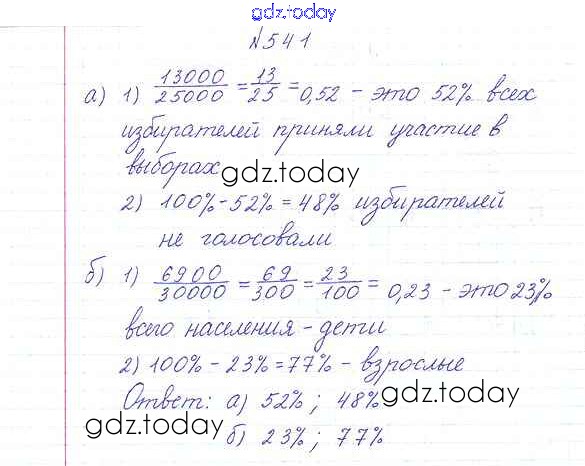 gdz.today
№541
а) 1) 13000/25000 = 13/25 = 0,52 - это 52% всех
избирателей приняли участие в
выборах
gdz.today
2) 100%-52% = 48% избирателей
не голосовали
б) 1) 6900/30000 = 69/300 = 23/100 = 0,23 - это 23%
всего населения - дети
2) 100% - 23% = 77% - взрослые
Ответ: а) 52% ; 48%
gdz.today
gdz.today
б) 23% ; 77%